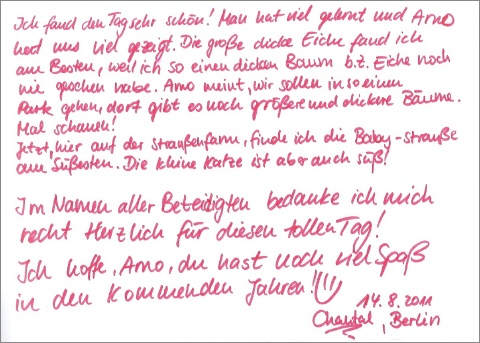 Ich fand den Tag sehr schön! Man hat viel gelernt und Arno
hat uns viel gezeigt. Die große dicke Eiche fand ich
am Besten, weil ich so einen dicken Baum b.z. Eiche noch
nie gesehen habe. Arno meint, wir sollen in so einen
Park gehen, dort gibt es noch größere und dickere Bäume.
Mal schauen!
Jetzt, hier auf der straußenfarm, finde ich die Baby-strauße
am Süßesten. Die kleine Katze ist aber auch süß!
Im Namen aller Beteidigten bedanke ich mich
recht Herzlich für diesen tollen Tag!
Ich hoffe, Arno, du hast noch viel Spaß
in den kommenden Jahren!
14.8.2011
Chantal, Berlin